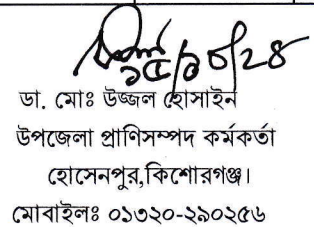 ১৫/১০/২৪
ডা. মোঃ উজ্জল হোসাইন
উপজেলা প্রাণিসম্পদ কর্মকর্তা
হোসেনপুর,কিশোরগঞ্জ।
মোবাইলঃ ০১৩২০-২৯০২৫৬